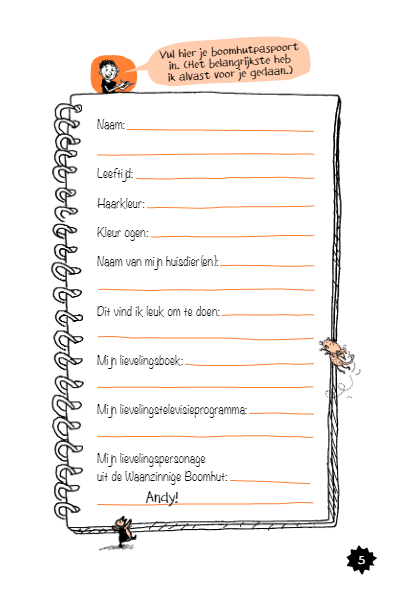 Vul hier je boomhutpaspoort
in. (Het belangrijkste heb
ik alvast voor je gedaan.)
Naam:
Leeftijd:
Haarkleur:
Kleur ogen:
Naam van mijn huisdier(en):
Dit vind ik leuk om te doen:
Mijn lievelingsboek:
Mijn lievelingstelevisieprogramma:
Mijn lievelingspersonage
uit de Waanzinnige Boomhut:
Andy!
5